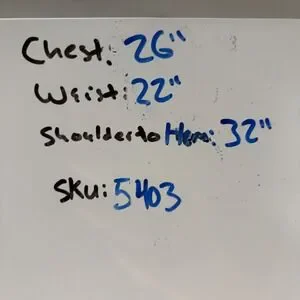 Chest: 26"
Waist: 22"
Shoulder to Hem: 32"
SKU: 5403